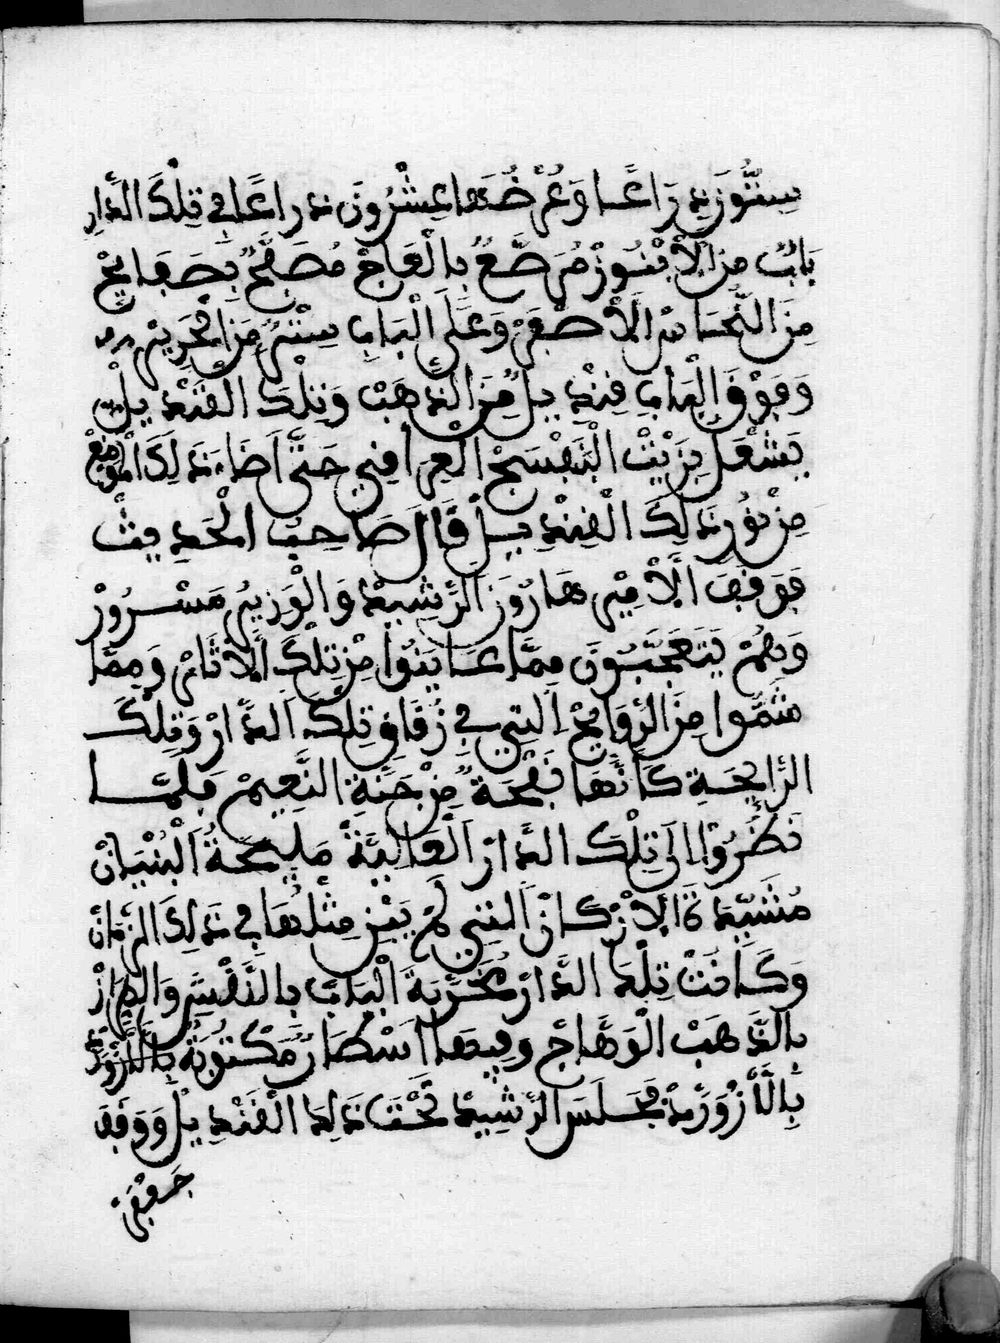 ستون ذراعا وعرضها عشرون ذراعا في تلك الدار
باب من الأبنوز مرصع بالعاج مصفح بصفايح
من النحاس الأصفر وعلى الباب ستر من الحرير
وفوق الباب قنديل من الذهب وتلك القنديل
يشعل بزيت البنفسج العراقي حتى أضاء ذلك الموضع
من نور ذلك القنديل قال صاحب الحديث
فوقف الأمير هارون الرشيد والوزير مسرور
وهم يتعجبون مما عاينوا من تلك الأثار ومما
شموا من الروايح التي في زقاق تلك الدار وتلك
الرايحة كأنها نفحة من جنة النعيم فلما
نظروا إلى تلك الدار العالية مليحة البنيان
مشيدة الأركان التي لم يبن مثلها في ذلك الزمان
وكانت تلك الدار الباب بالنقش والطراز
بالذهب الوهاج وفيها أسطار مكتوبة
بالأزورد فجلس الرشيد تحت ذلك القنديل ووقف
جعفر